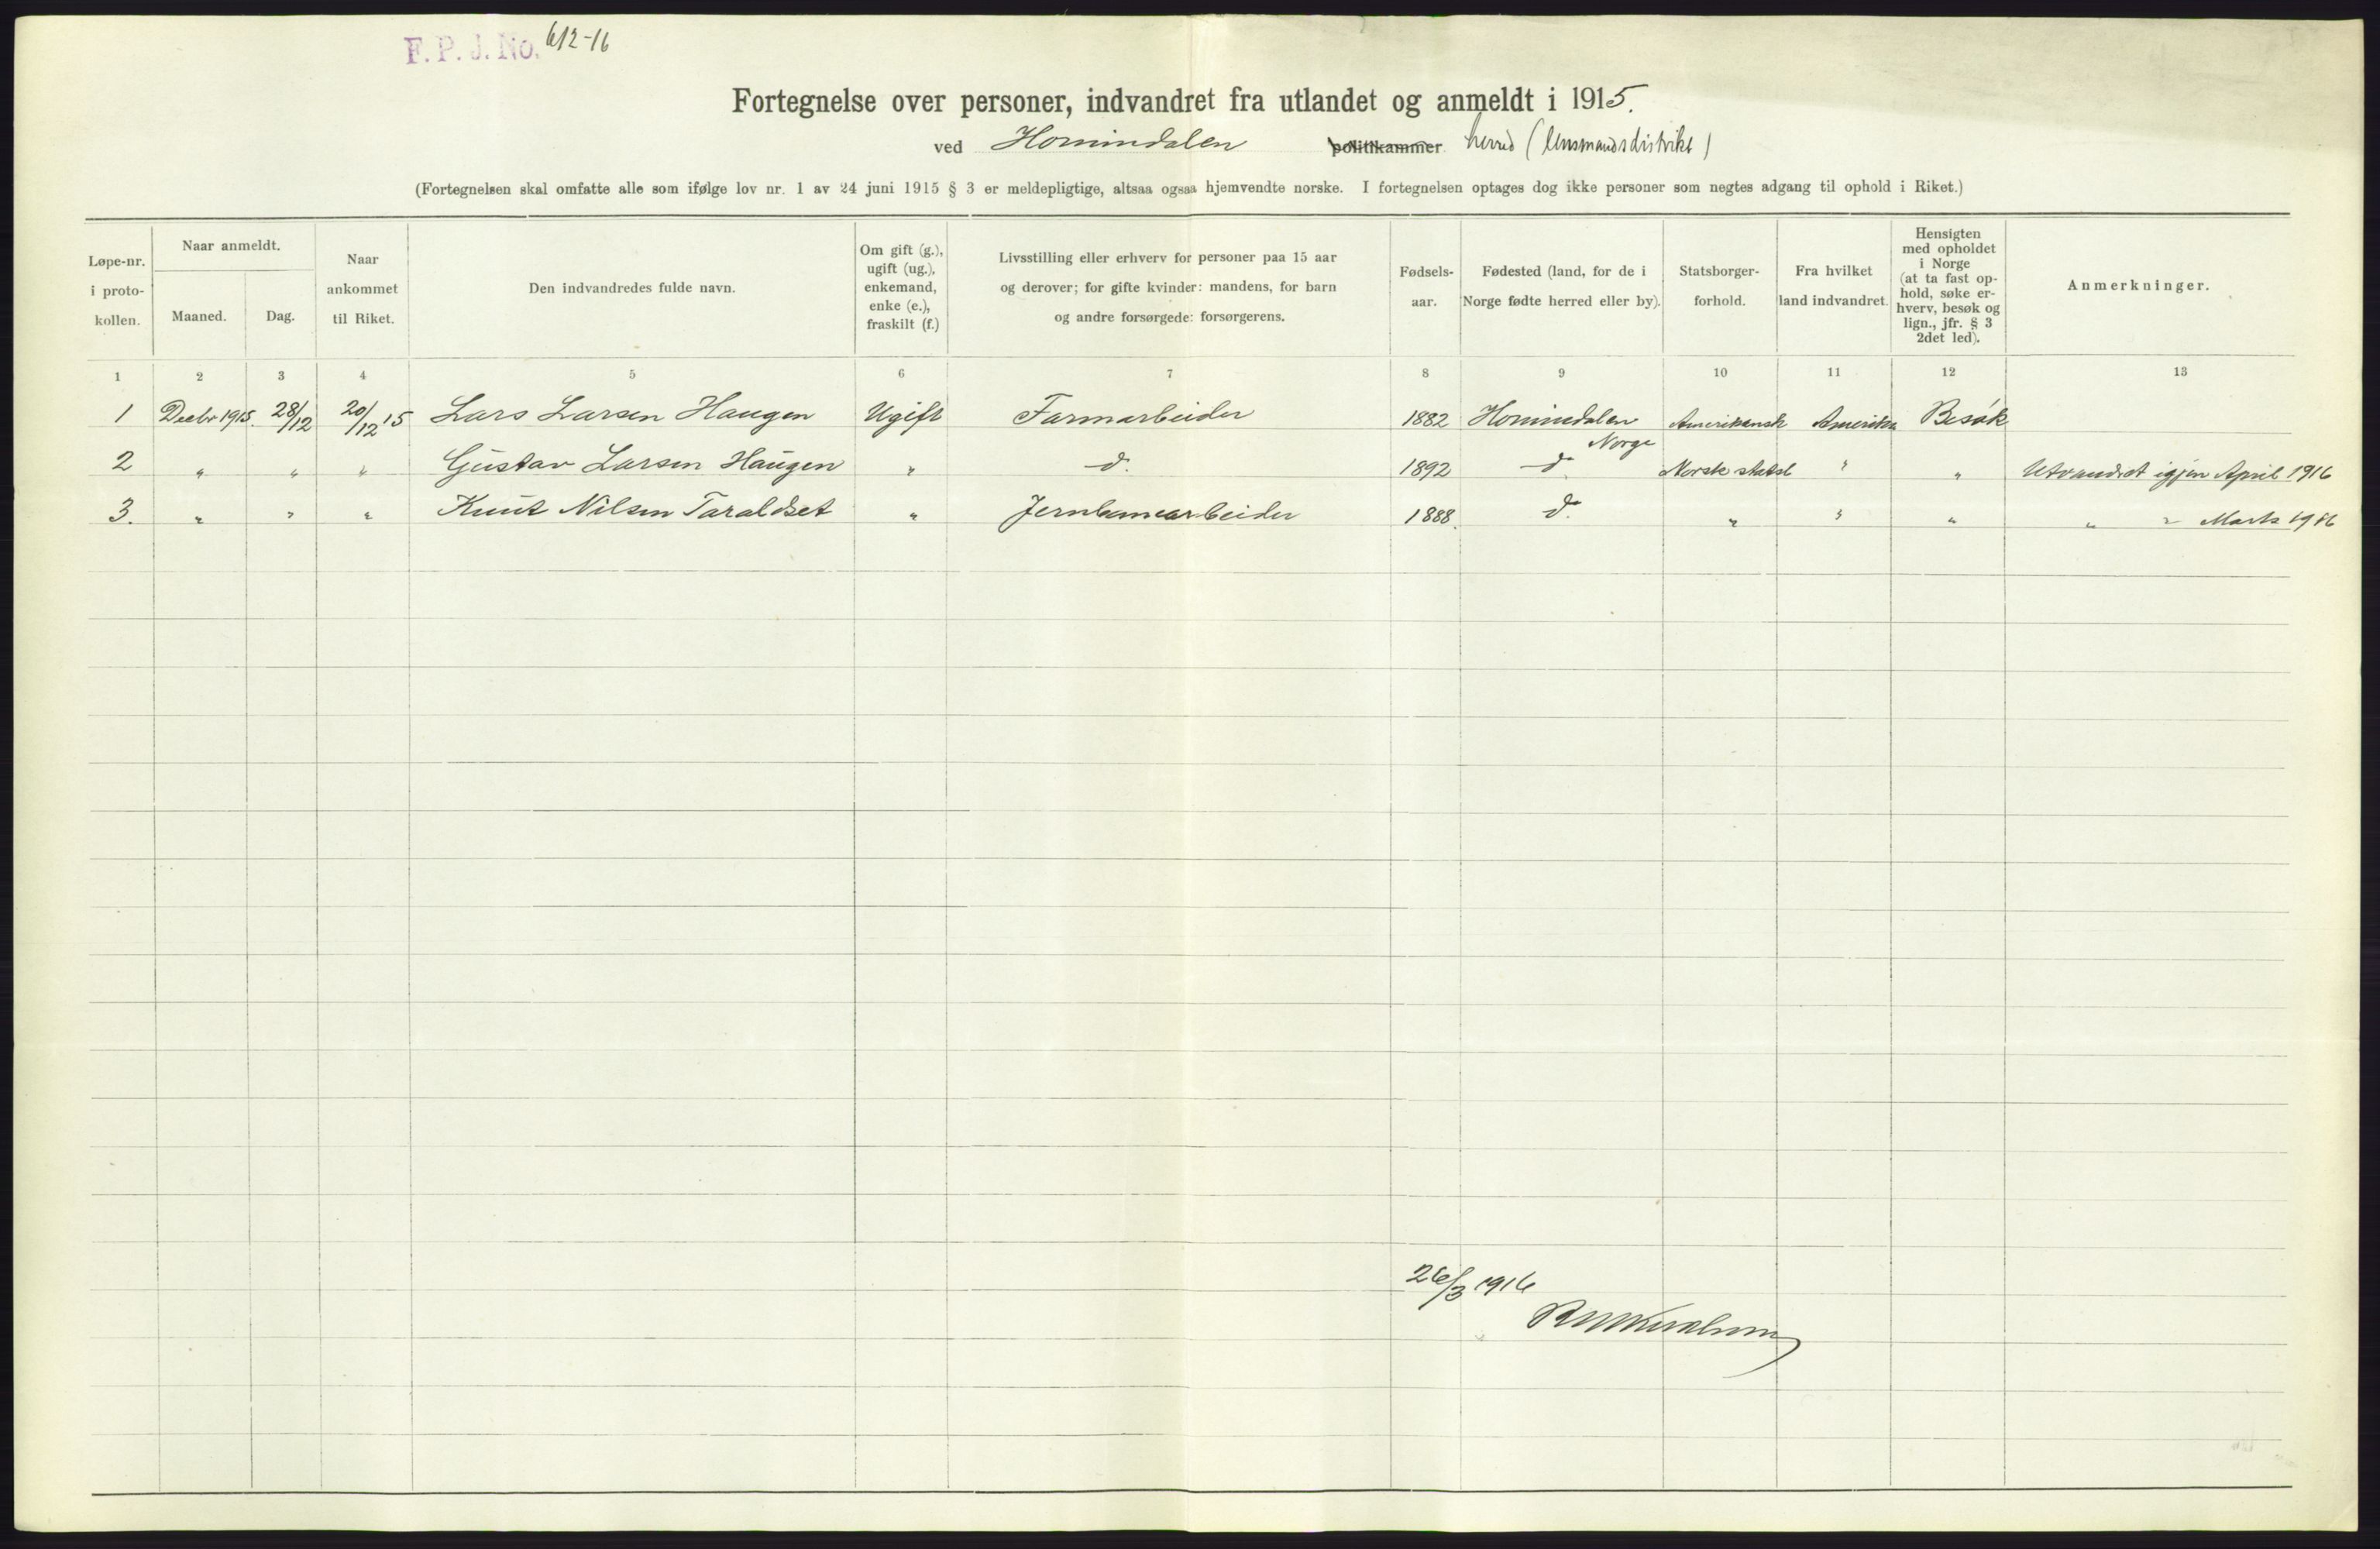 F. P. J. No. 612-16
Fortegnelse over personer, indvandret fra utlandet og anmeldt i 1915.
ved Hornindalen politikammer herred (lensmandsdistrikt)
(Fortegnelsen skal omfatte alle som ifølge lov nr. 1 av 24 juni 1915 § 3 er meldepligtige, altsaa ogsaa hjemvendte norske. I fortegnelsen optages dog ikke personer som negtes adgang til ophold i Riket.)
Løpe-nr.
i proto-
kollen.
Naar anmeldt.
Maaned.
Dag.
Naar
ankommet
til Riket.
Den indvandredes fulde navn.
Om gift (g.),
ugift (ug.),
enkemand,
enke (e.),
fraskilt (f.)
Livsstilling eller erhverv for personer paa 15 aar
og derover; for gifte kvinder: mandens, for barn
og andre forsørgede: forsørgerens.
Fødsels-
aar.
Fødested (land, for de i
Norge fødte herred eller by).
Statsborger-
forhold.
Fra hvilket
land indvandret.
Hensigten
med opholdet
i Norge
(at ta fast op-
hold, søke er-
hverv, besøk og
lign., jfr. § 3
2det led).
Anmerkninger.
1 2 3 4 5 6 7 8 9 10 11 12 13
1 Decbr 1915. 28/12 20/12 15 Lars Larsen Haugen Ugift Farmarbeider 1882 Hornindalen Amerikansk Amerika Besøk
Norge
2 " " " Gustav Larsen Haugen " do. 1892 do. Norsk statsb " " Utvandret igjen April 1916
3. " " " Knut Nilsen Taraldset " Jernbanearbeider 1888. do. " " " " " Marts 1916
26/3 1916